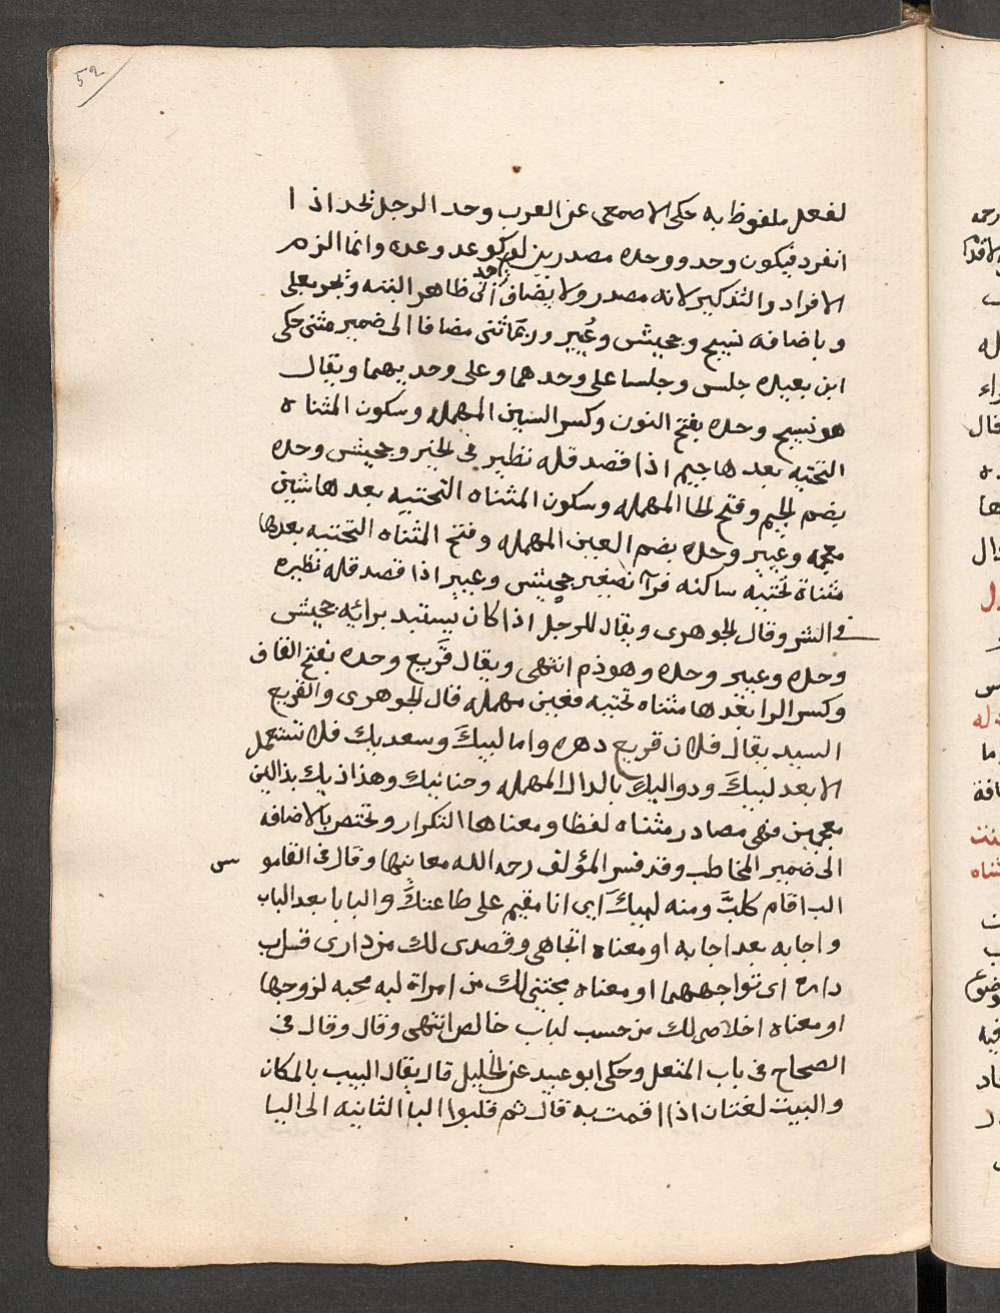 52
لفعل ملفوظ به حكى الاصمعى عن العرب وحد الرجل يحد اذ ا
انفرد فيكون وحد ووحده مصدرين لوحد كوعد وعده وانما الزم
الافراد والتذكير لانه مصدر ولا يضاف الى ظاهر البته وبجر بعلى
وباضافه نسيج وجحيش وعُيير وربمّا ثنى مضافا الى ضمير مثنى حكى
ابن بعيده جلس وجلسا على وحدهما وعلى وحديهما ويقال
هو نسيج وحده بفتح النون وكسر السين المهمله وسكون المثناه
التحتيه بعدها جيم اذا قصد قله نظير فى الخير وجحيش وحده
بضم الجيم وفتح الحا المهمله وسكون المثناه التحتيه بعدها شين
معجمه وعيير وحده بضم العين المهمله وفتح المثناه التحتيه بعدها
مثناة تحتيه ساكنه فرآ تصغير جحش وعير اذا قصد قله نظيره
فى الشر وقال الجوهرى ويقال للرجل اذا كان يستبد برائه جحيش
وحده وعيير وحده وهو ذم انتهى ويقال قَريع وحده بفتح القاف
وكسر الرا بعدها مثناه تحتيه فعين مهمله قال الجوهرى والقريع
السيد يقال فلان قريع دهره واما لبيكَ وسعديك فلا تستعمل
الا بعد لبيكَ ودواليك بالدال المهمله وحنانيك وهذاذيك بذالين
معجمين فهى مصادر مثناه لفظا ومعناها التكرار وتختص بالاضافه
الى ضمير المخاطب وقد فسر المؤلف رحمه الله معانيها وقال فى القامو س
الب اقام كلبَّ ومنه لبيكَ اى انا مقيم على طاعتكَ والبابا بعد الباب
واجابه بعد اجابه او معناه اتجاهى وقصدى لك من دارى تلب
داره اى تواجهها او معناه محبتى لك من امراة لبه محبه لزوجها
او معناه اخلاصى لك من حسب لباب خالص انتهى وقال وقال فى
الصحاح فى باب المعتل وحكى ابو عبيد عن الخليل قال يقال البيب بالمكان
والبيت لغتان اذا اقمت به قال ثم قلبوا البا الثانيه الى اليا